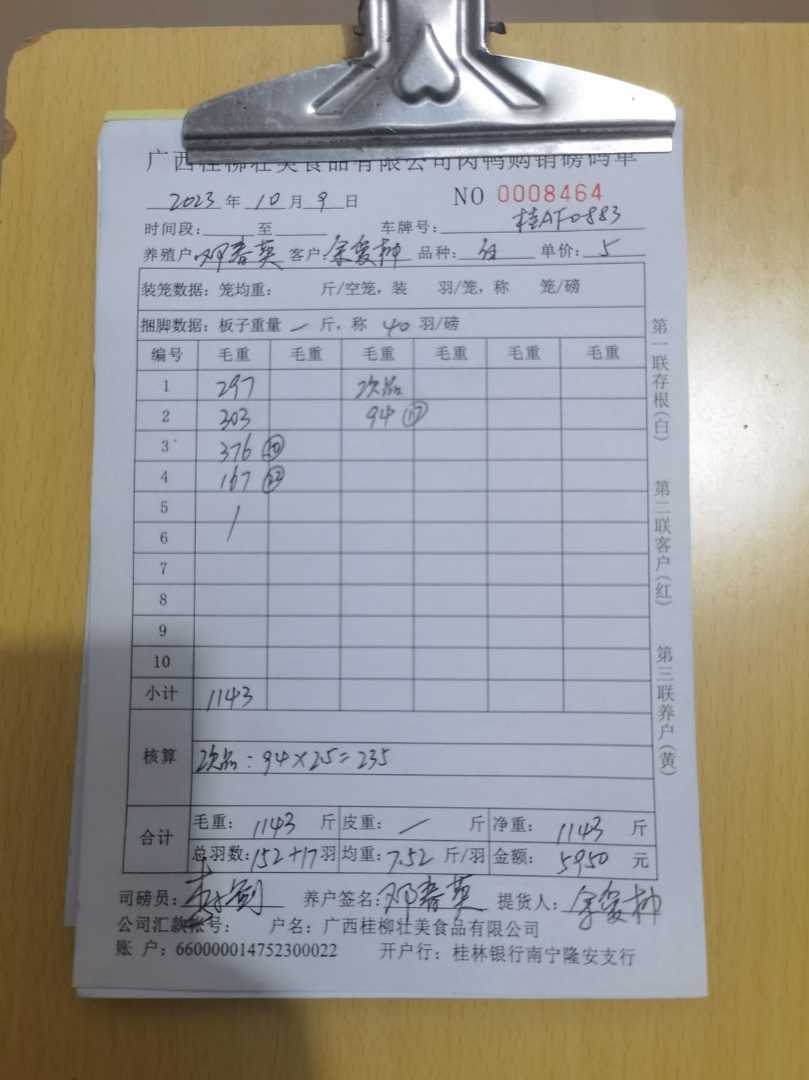 广西桂柳壮美食品有限公司肉鸭购销磅码单
2023年10月9日 NO 0008464
时间段: 至 车牌号: 桂AF0883
养殖户 邓春英 客户: 余复柳 品种: 单价: 5
装笼数据: 笼均重: 斤/空笼, 装 羽/笼, 称 笼/磅
捆脚数据: 板子重量 / 斤, 称 40 羽/磅
编号 毛重 毛重 毛重 毛重 毛重 毛重
1 297 次品
2 303 94 ⑰
3 376 ㊿
4 167 ㉒
5 /
6
7
8
9
10
小计 1143
核算 次品: 94×25=235
合计 毛重: 1143 斤 皮重: / 斤 净重: 1143 斤
总羽数: 152+17羽 均重: 7.52 斤/羽 金额: 5950 元
司磅员: 养户签名: 邓春英 提货人: 余复柳
公司汇款帐号: 户名: 广西桂柳壮美食品有限公司
账 户: 660000014752300022 开户行: 桂林银行南宁隆安支行
第一联存根(白)
第二联客户(红)
第三联养户(黄)